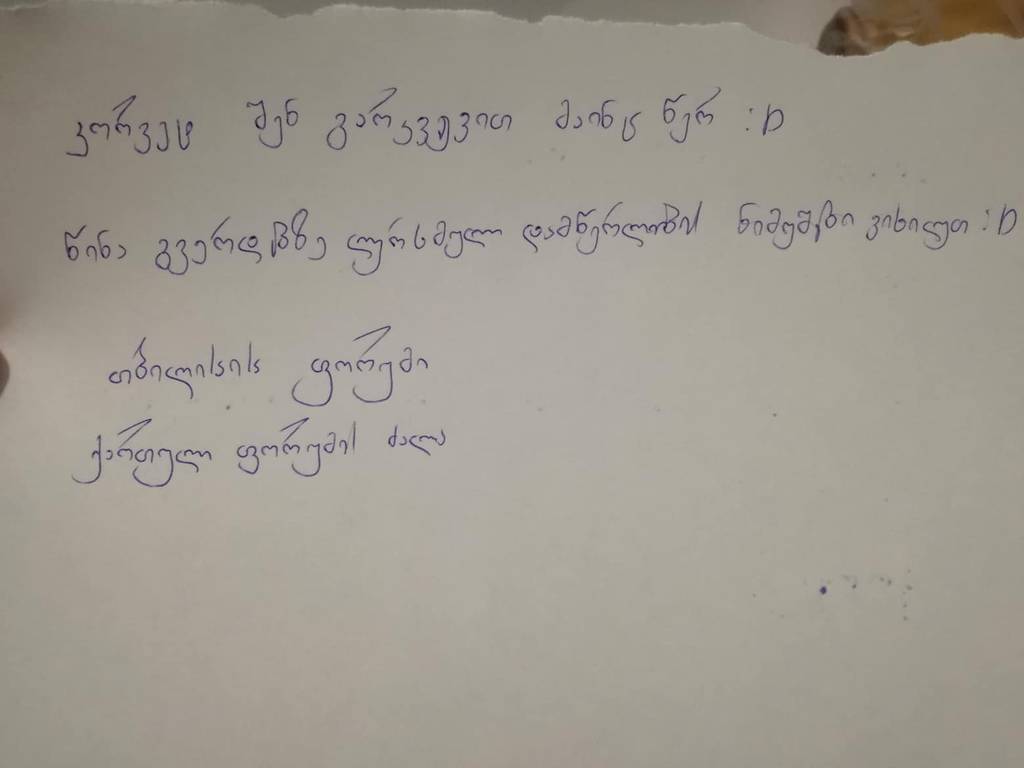 კორვეტ შენ გარკვევით მაინც წერ :D
წინა გვერდებზე ლურსმული დამწერლობის ნიმუშები ვიხილეთ :D
თბილისის ფორუმი
ქართული ფორუმის ძალა